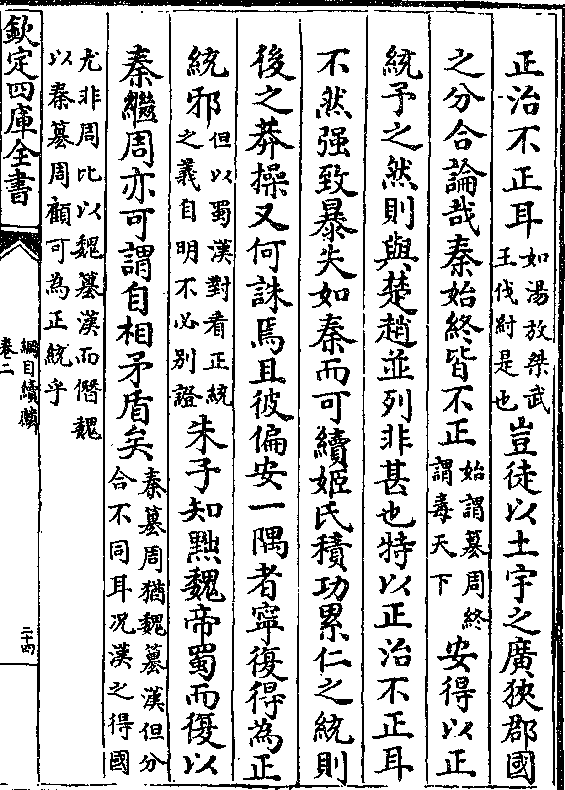 正治不正耳如湯放桀武王伐紂是也豈徒以土宇之廣狹郡國
之分合論哉秦始終皆不正始謂篡周終謂毒天下安得以正
統予之然則與楚趙並列非甚也特以正治不正耳
不然强致暴失如秦而可續姬氏積功累仁之統則
後之莽操又何誅焉且彼偏安一隅者寧復得為正
統邪但以蜀漢對看正統之義自明不必别證朱子知黜魏帝蜀而復以
秦繼周亦可謂自相矛盾矣秦篡周猶魏篡漢但分合不同耳况漢之得國
尤非周比以魏篡漢而僭魏以秦篡周顧可為正統乎
欽定四庫全書
綱目續麟
卷二
二十四